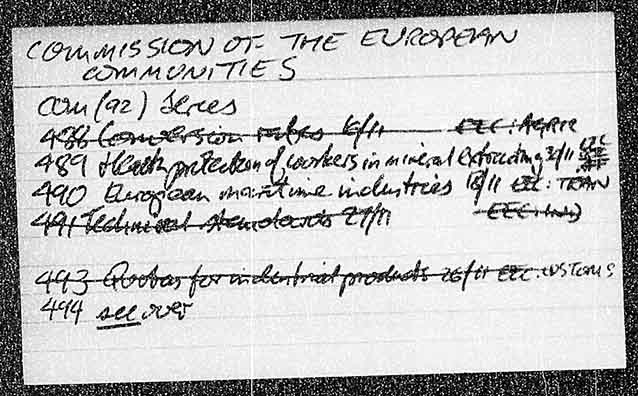 COMMISSION OF THE EUROPEAN
COMMUNITIES
COM(92) Series
488 Conversion rates 16/11 EEC: AGRIC
489 Health protection of workers in mineral extracting /11 EEC
490 European maritime industries 18/11 EEC: TRAN
491 Technical standards 27/11 EEC: IND
493 Quotas for industrial products 26/11 EEC: CUSTOMS
494 see over